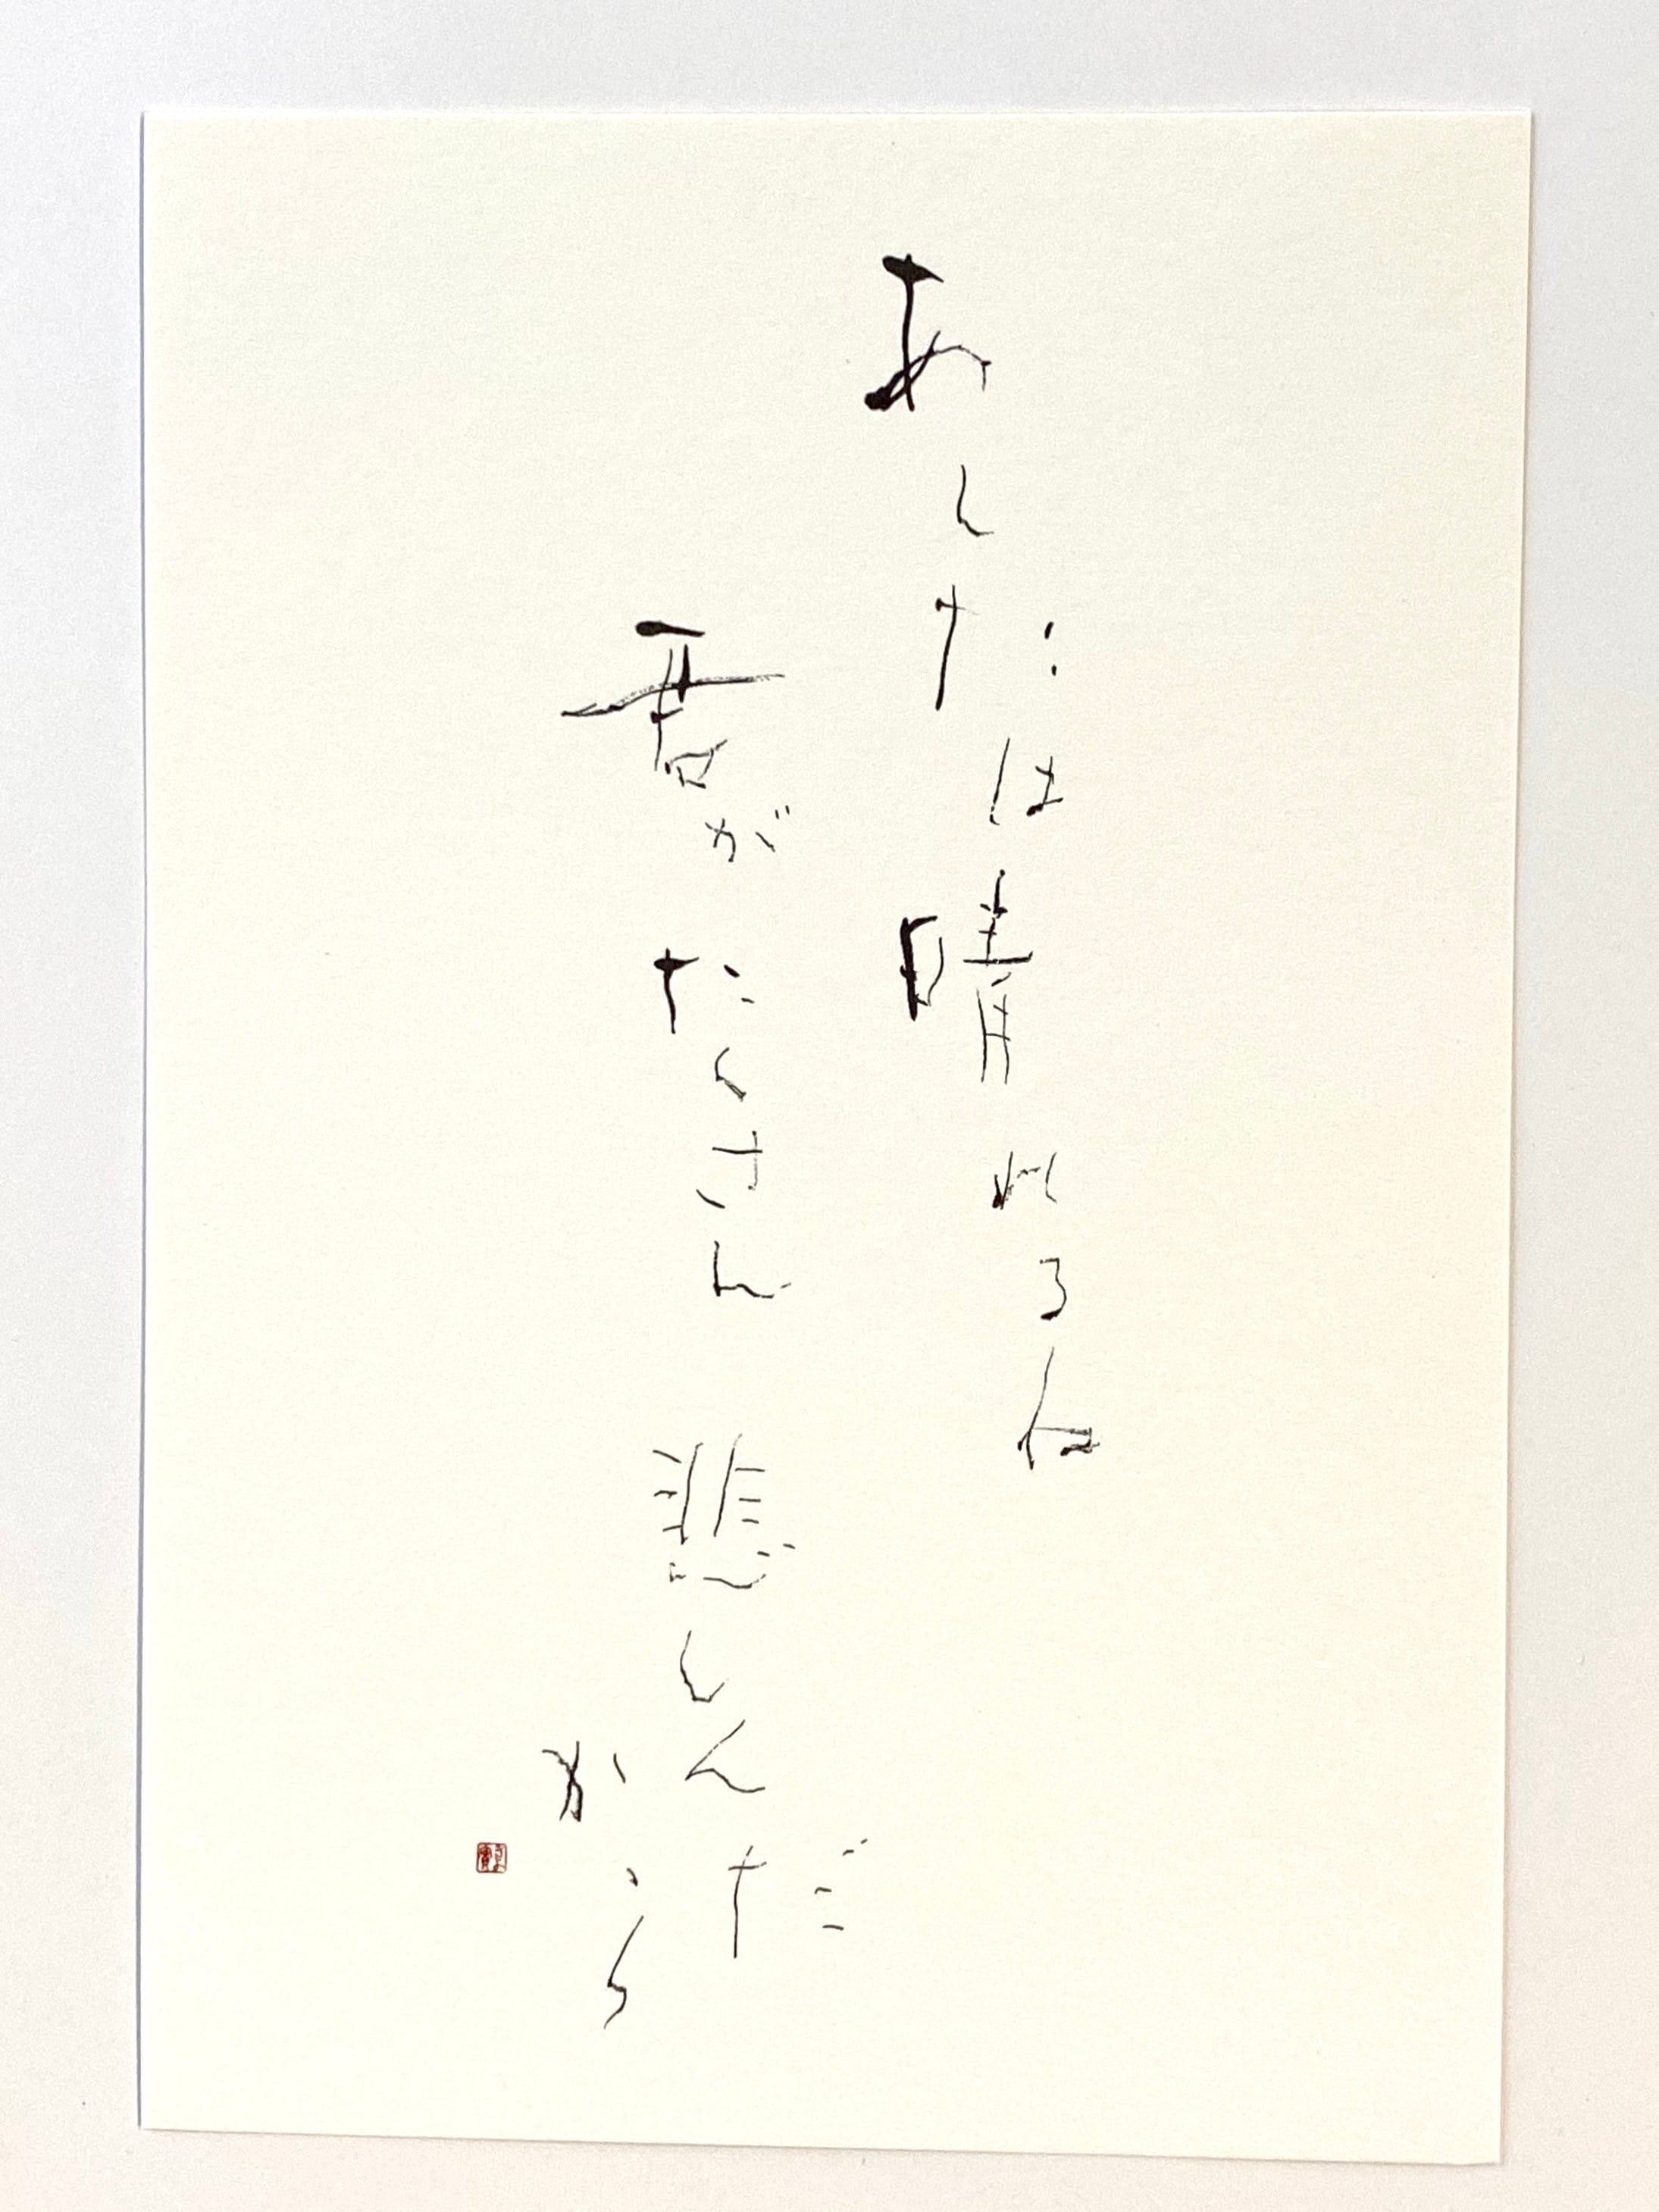 あしたは晴れるね
君がたくさん悲しんだ
から